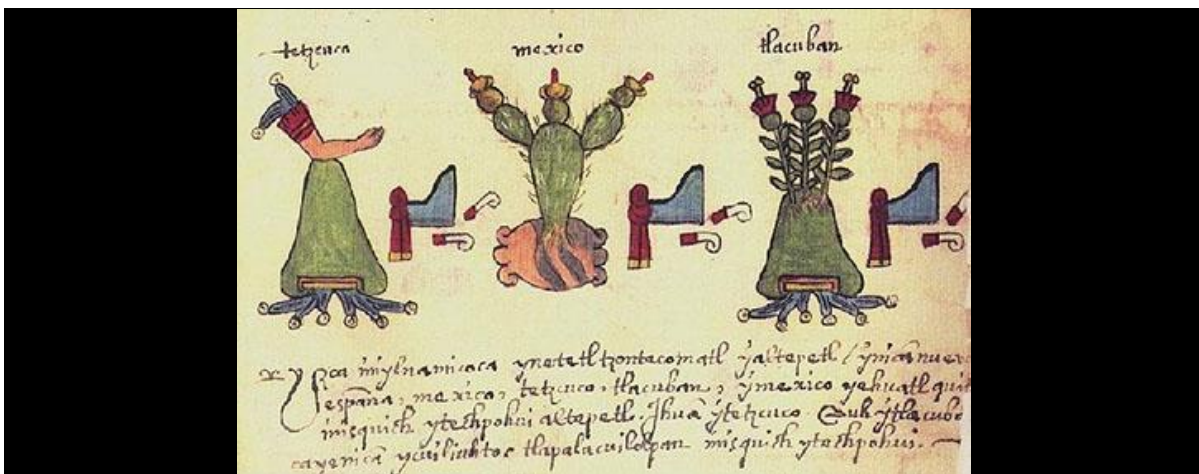 tetzcuco
mexico
tlacuban
ca inylnamicoca ynetetl tzontecomatl yaltepetl / ynican nueva
españa, mexico, tetzcuco, tlacuban, ymexico yehuatl qui
misquich ytechpohui altepetl. Ihuā ytetzcuco
cayenicā ycuiliuhtoc tlapalacuilolpan misquich ytechpohui.